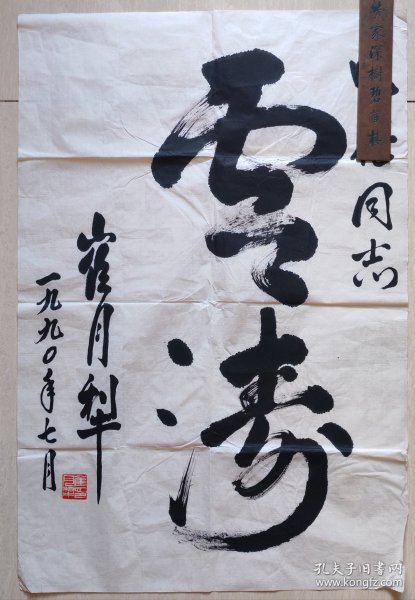 深樹碧
同志
雲涛
崔月犁
一九九〇年七月
孔夫子旧书网
www.kongfz.com